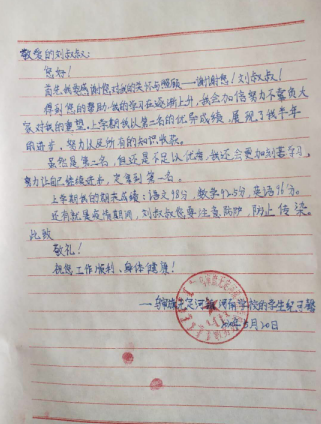 敬爱的刘叔叔:
您好!
首先我要感谢您对我的关怀与照顾——谢谢您!刘叔叔!
得到您的帮助,我的学习在逐渐上升,我会加倍努力不辜负大
家对我的重望。上学期我以第二名的优异成绩,展现了我半年
的进步,努力以及所有的知识收获。
虽然是第二名,但还是不足以优秀,我还会更加刻苦学习,
努力让自己继续进步,定拿到第一名。
上学期我的期末成绩:语文98分,数学92.5分,英语96分。
还有就是疫情期间,刘叔叔您要注意防护,防止传染。
此致
敬礼!
祝您工作顺利、身体健康!
学校的学生
月20日